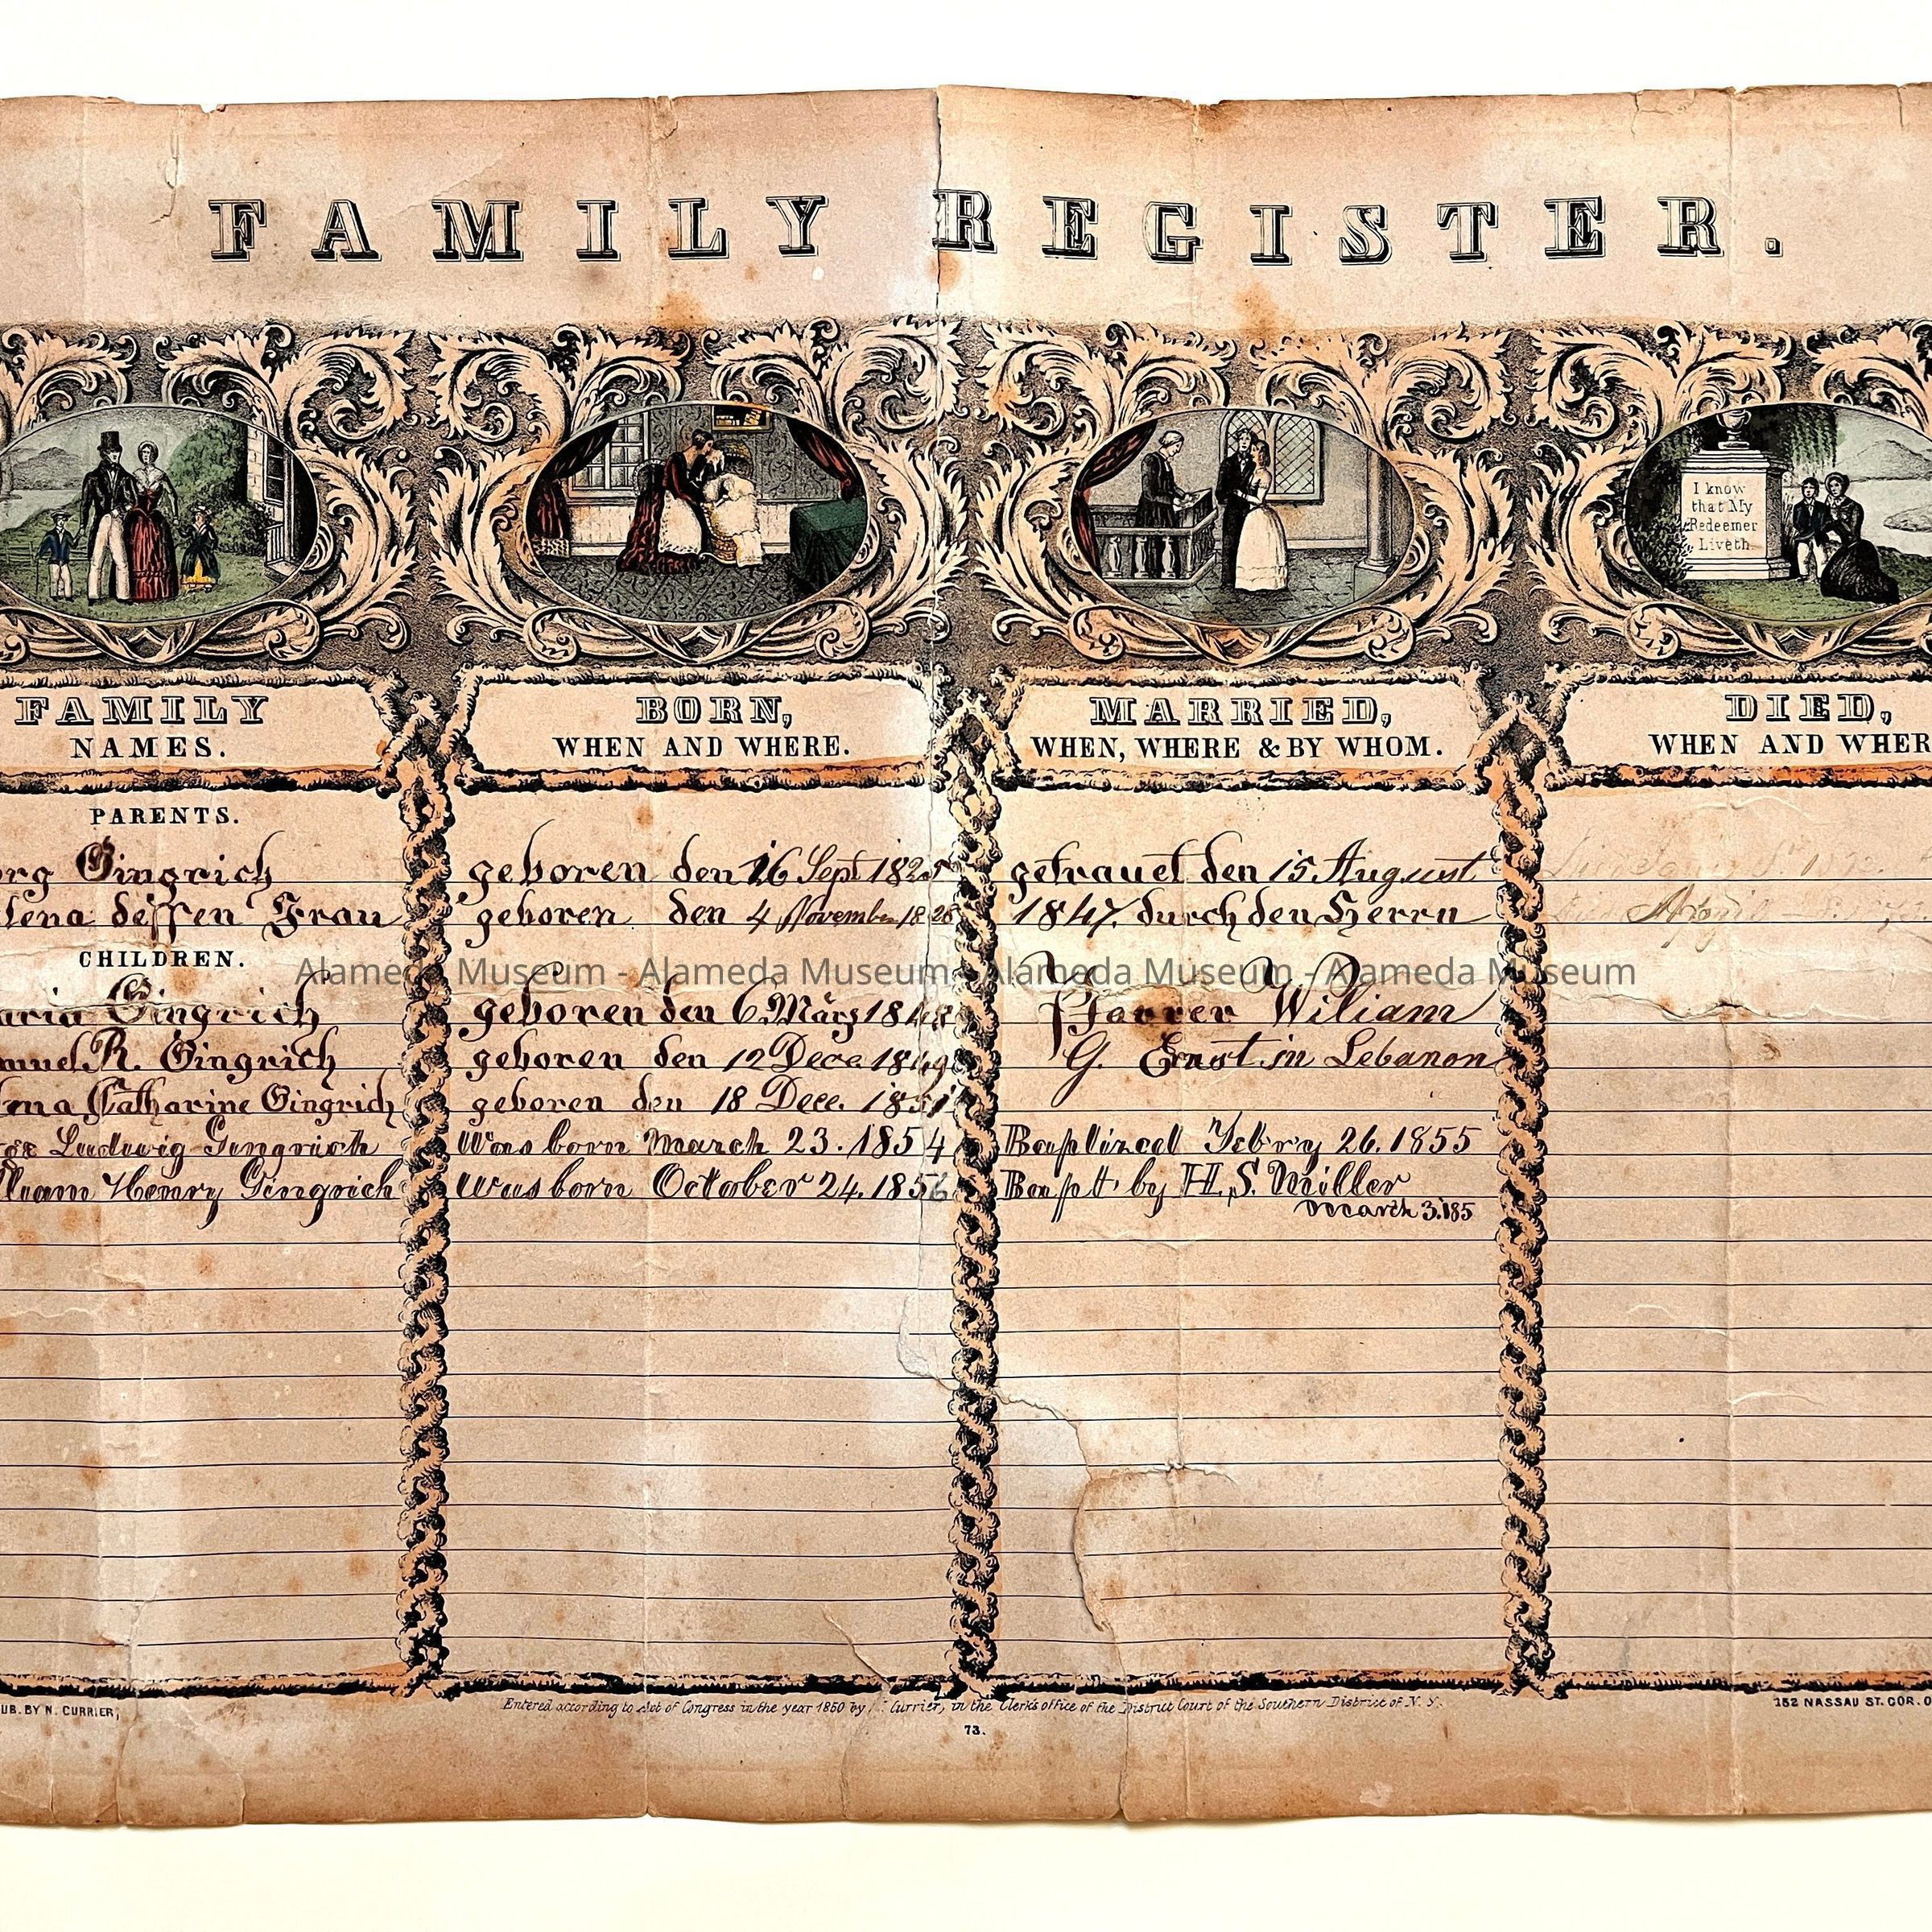 FAMILY REGISTER.
I know
that My
Redeemer
Liveth
FAMILY
NAMES.
BORN,
WHEN AND WHERE.
MARRIED,
WHEN, WHERE & BY WHOM.
DIED,
WHEN AND WHER
PARENTS.
org Gingrich geboren den 26 Sept 1825 getrauet den 15 August
lena dessen Frau geboren den 4 November 1826 1847. durch den Herrn April
CHILDREN.
Alameda Museum - Alameda Museum - Alameda Museum - Alameda Museum
aria Gingrich geboren den 6. März 1848 Pfarrer Wiliam
muel R. Gingrich geboren den 12 Dece. 1849 G. Ernst in Lebanon
Catharine Gingrich geboren den 18 Dece. 1851
Ludwig Gingrich Was born March 23. 1854 Baptized Febry 26. 1855
lliam Henry Gingrich Was born October 24. 1856 Bapt. by H. S. Miller
March 3. 185
UB. BY N. CURRIER,
Entered according to Act of Congress in the year 1850 by N. Currier, in the Clerks office of the District Court of the Southern District of N.Y.
152 NASSAU ST. COR. O
73.